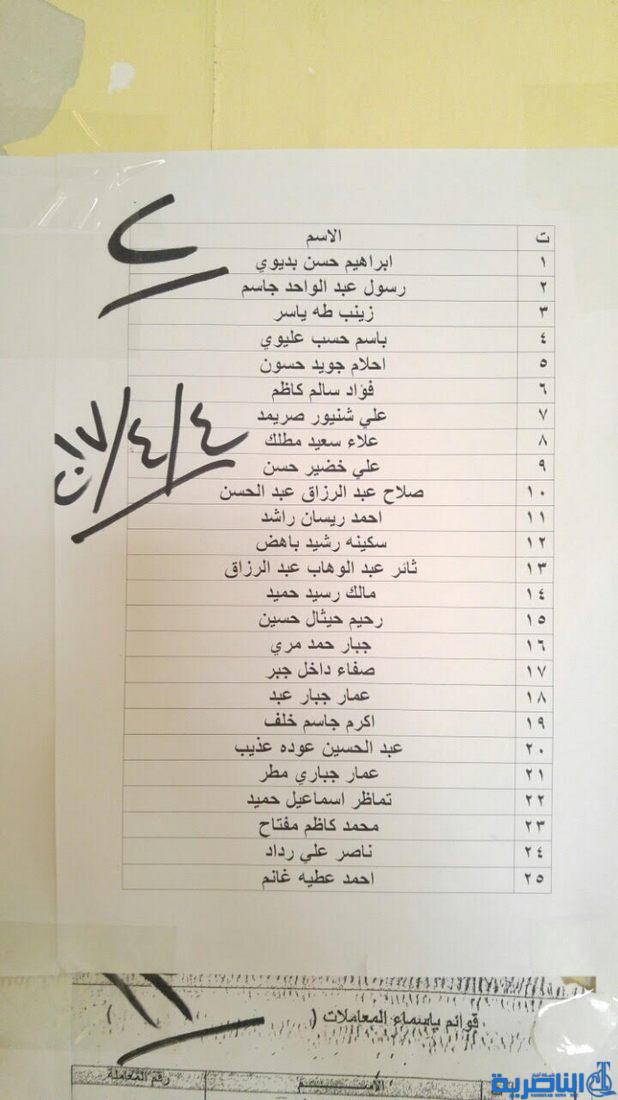 ت الاسم
١ ابراهيم حسن بديوي
٢ رسول عبد الواحد جاسم
٣ زينب طه ياسر
٤ باسم حسب عليوي
٥ احلام جويد حسون
٦ فؤاد سالم كاظم
٧ علي شنيور صريمد
٨ علاء سعيد مطلك
٩ علي خضير حسن
١٠ صلاح عبد الرزاق عبد الحسن
١١ احمد ريسان راشد
١٢ سكينه رشيد باهض
١٣ ثائر عبد الوهاب عبد الرزاق
١٤ مالك رسيد حميد
١٥ رحيم حيثال حسين
١٦ جبار حمد مري
١٧ صفاء داخل جبر
١٨ عمار جبار عبد
١٩ اكرم جاسم خلف
٢٠ عبد الحسين عوده عذيب
٢١ عمار جباري مطر
٢٢ تماظر اسماعيل حميد
٢٣ محمد كاظم مفتاح
٢٤ ناصر علي رداد
٢٥ احمد عطيه غانم
٤/٤/٢٠١٧
قوائم باسماء المعاملات ( )
رقم المعاملة
الناصرية